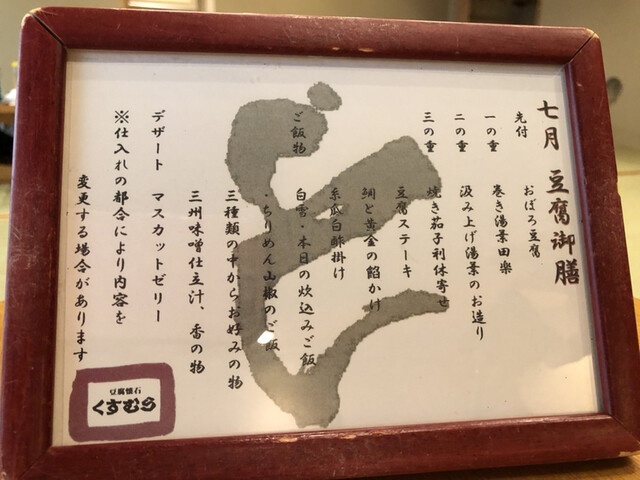 七月 豆腐御膳
先付 おぼろ豆腐
一の重 巻き湯葉田楽
二の重 汲み上げ湯葉のお造り
三の重 焼き茄子利休寄せ
豆腐ステーキ
鯛と黄金の餡かけ
糸瓜白酢掛け
ご飯物 白雪・本日の炊込みご飯
・ちりめん山椒のご飯
三種類の中からお好みの物
三州味噌仕立汁、香の物
デザート マスカットゼリー
※仕入れの都合により内容を
変更する場合があります
豆腐懐石
くすむら